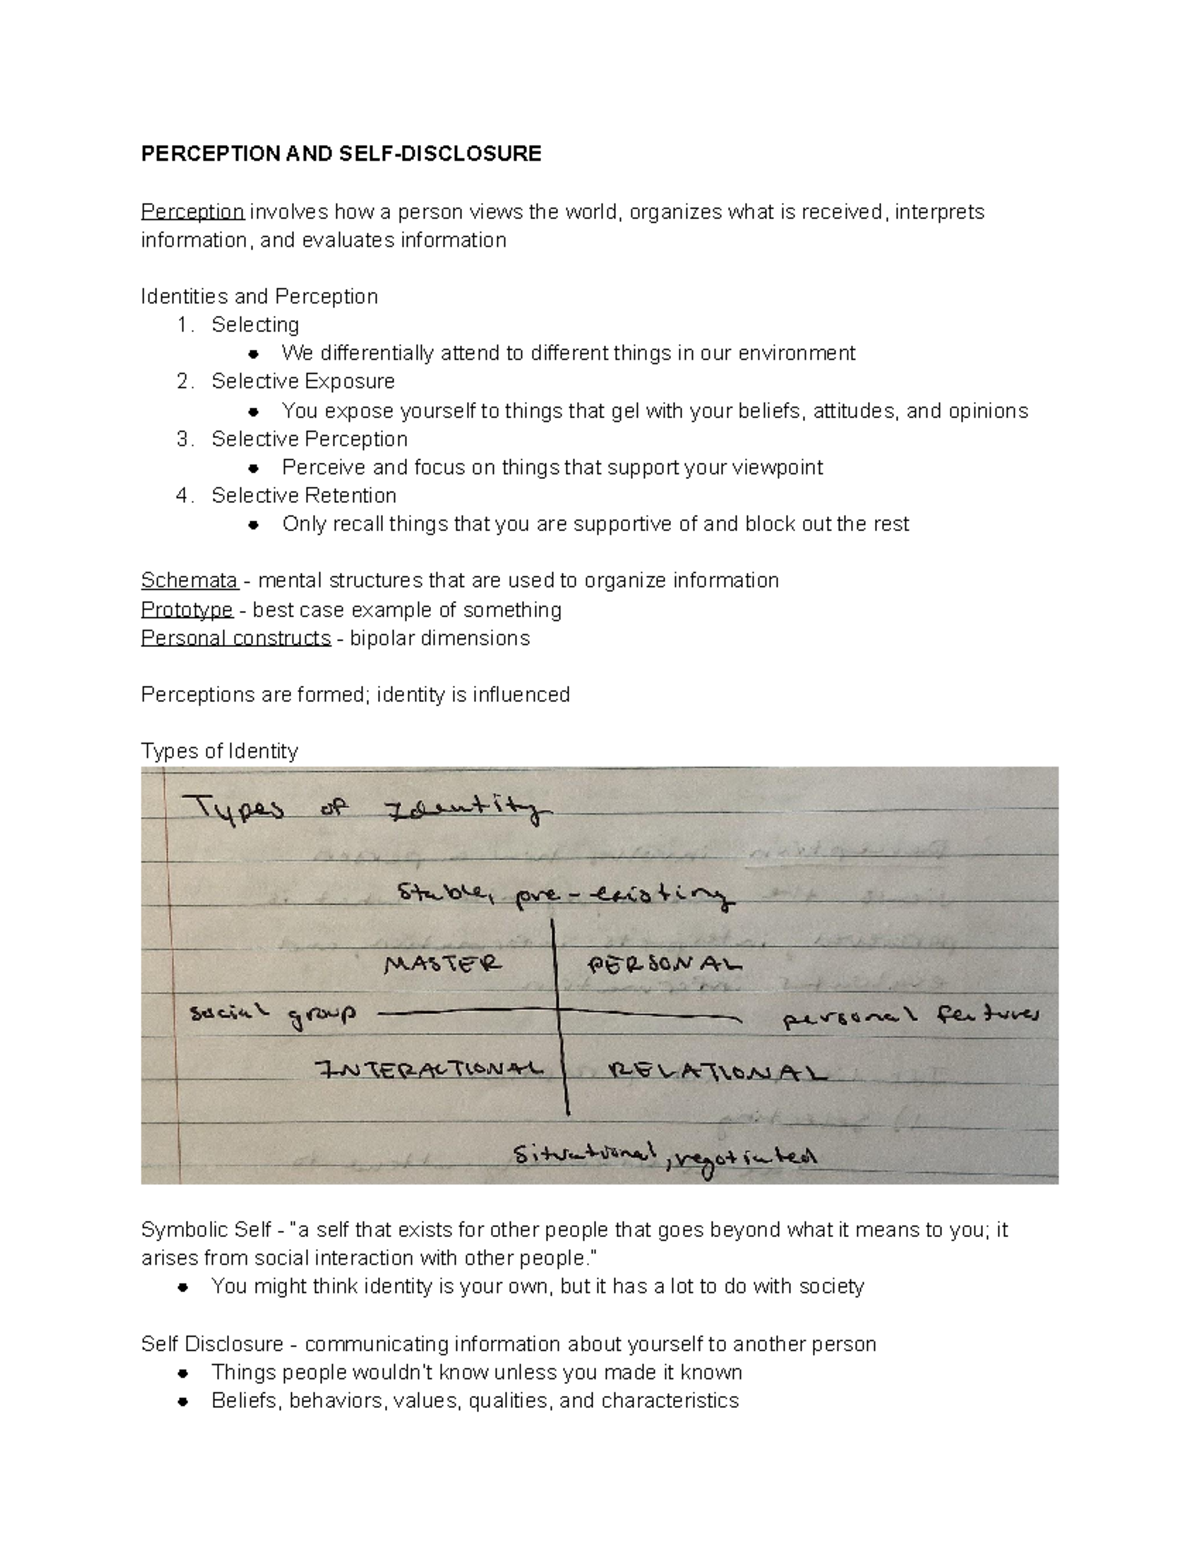 PERCEPTION AND SELF-DISCLOSURE
Perception involves how a person views the world, organizes what is received, interprets
information, and evaluates information
Identities and Perception
1. Selecting
● We differentially attend to different things in our environment
2. Selective Exposure
● You expose yourself to things that gel with your beliefs, attitudes, and opinions
3. Selective Perception
● Perceive and focus on things that support your viewpoint
4. Selective Retention
● Only recall things that you are supportive of and block out the rest
Schemata - mental structures that are used to organize information
Prototype - best case example of something
Personal constructs - bipolar dimensions
Perceptions are formed; identity is influenced
Types of Identity
Types of Identity
Stable, pre-existing
MASTER PERSONAL
social group personal features
INTERACTIONAL RELATIONAL
Situational, negotiated
Symbolic Self - "a self that exists for other people that goes beyond what it means to you; it
arises from social interaction with other people."
● You might think identity is your own, but it has a lot to do with society
Self Disclosure - communicating information about yourself to another person
● Things people wouldn't know unless you made it known
● Beliefs, behaviors, values, qualities, and characteristics